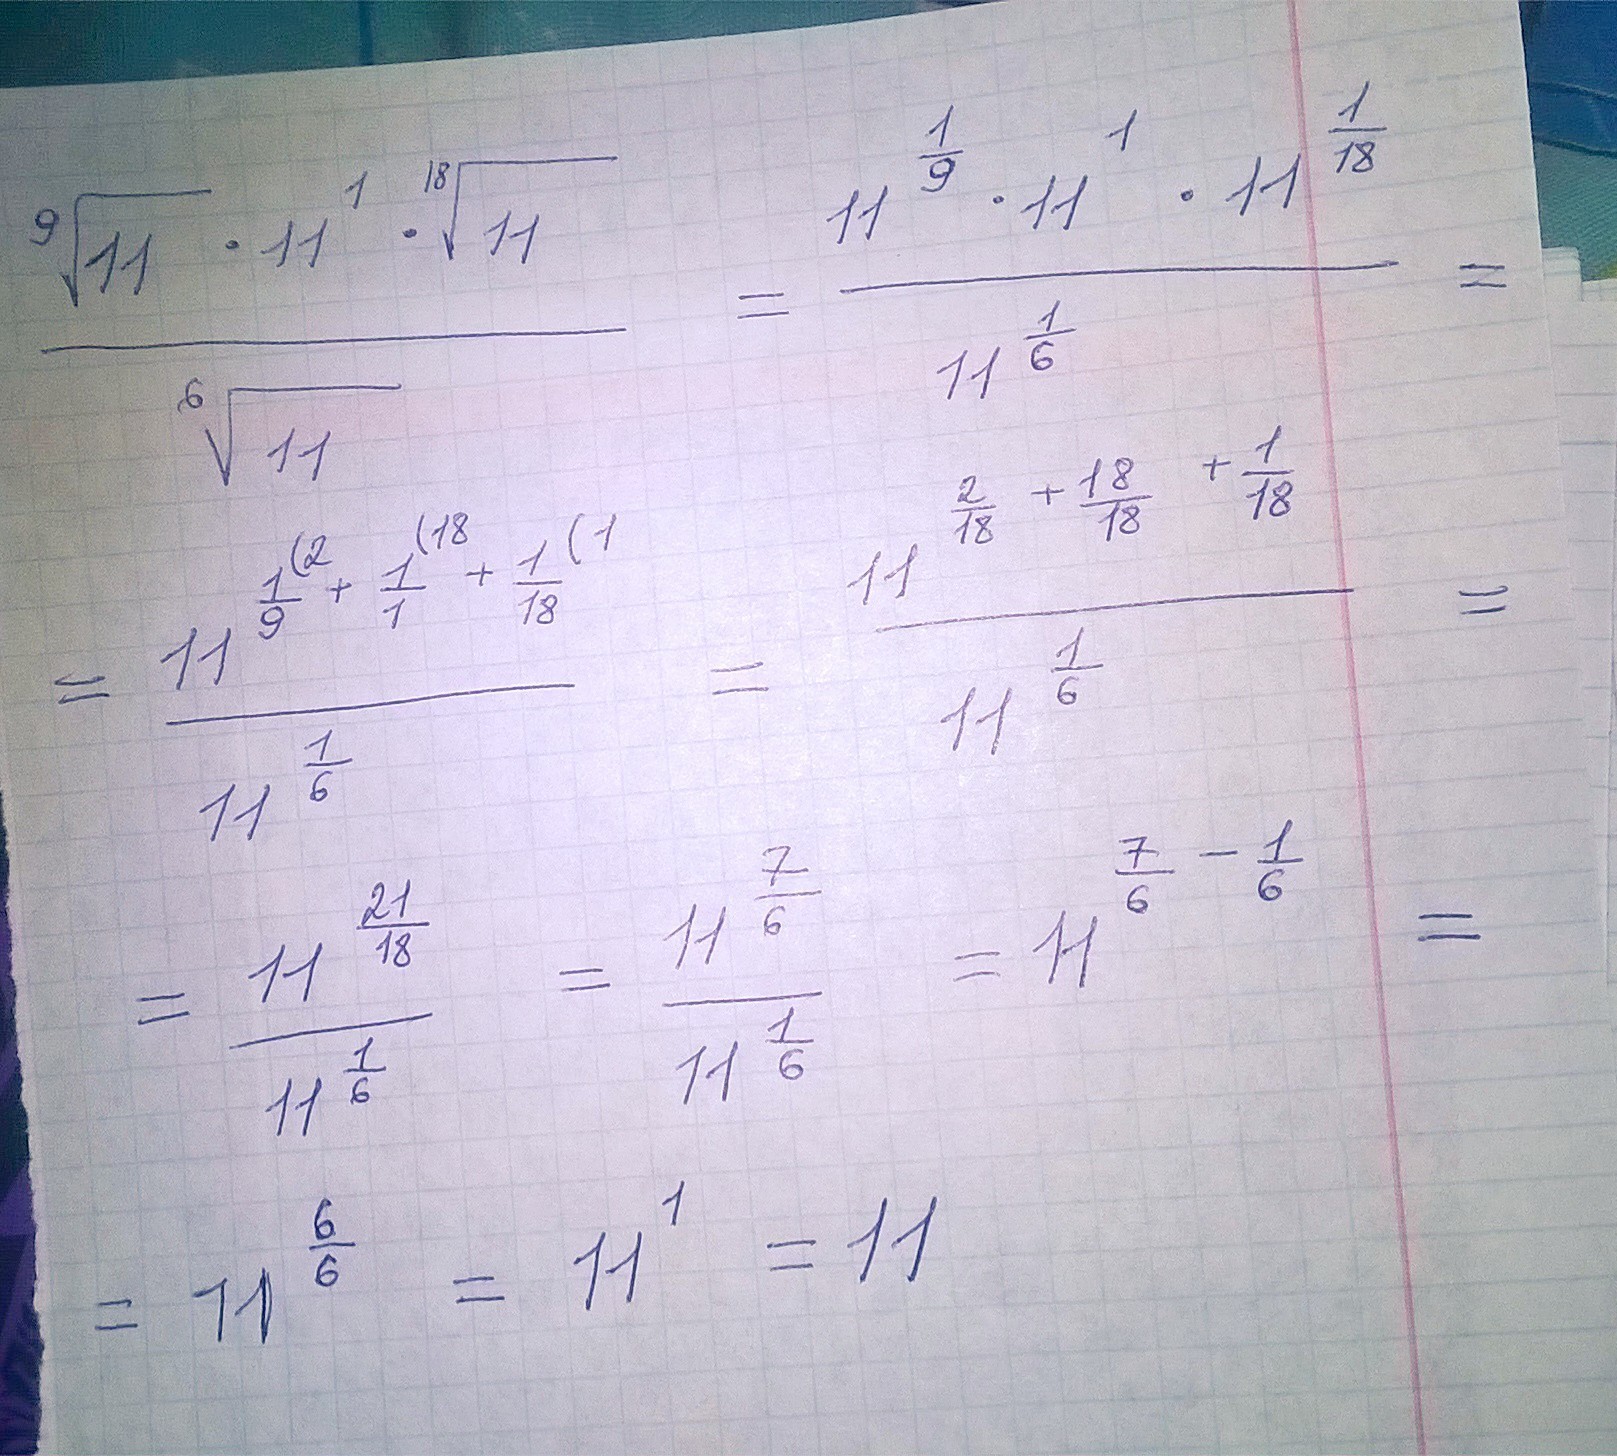 $\frac{\sqrt[9]{11} \cdot 11^{1} \cdot \sqrt[18]{11}}{\sqrt[6]{11}} = \frac{11^{\frac{1}{9}} \cdot 11^{1} \cdot 11^{\frac{1}{18}}}{11^{\frac{1}{6}}} =$
$= \frac{11^{\frac{1}{9}^{(2} + \frac{1}{1}^{(18} + \frac{1}{18}^{(1}}}{11^{\frac{1}{6}}} = \frac{11^{\frac{2}{18} + \frac{18}{18} + \frac{1}{18}}}{11^{\frac{1}{6}}} =$
$= \frac{11^{\frac{21}{18}}}{11^{\frac{1}{6}}} = \frac{11^{\frac{7}{6}}}{11^{\frac{1}{6}}} = 11^{\frac{7}{6} - \frac{1}{6}} =$
$= 11^{\frac{6}{6}} = 11^{1} = 11$